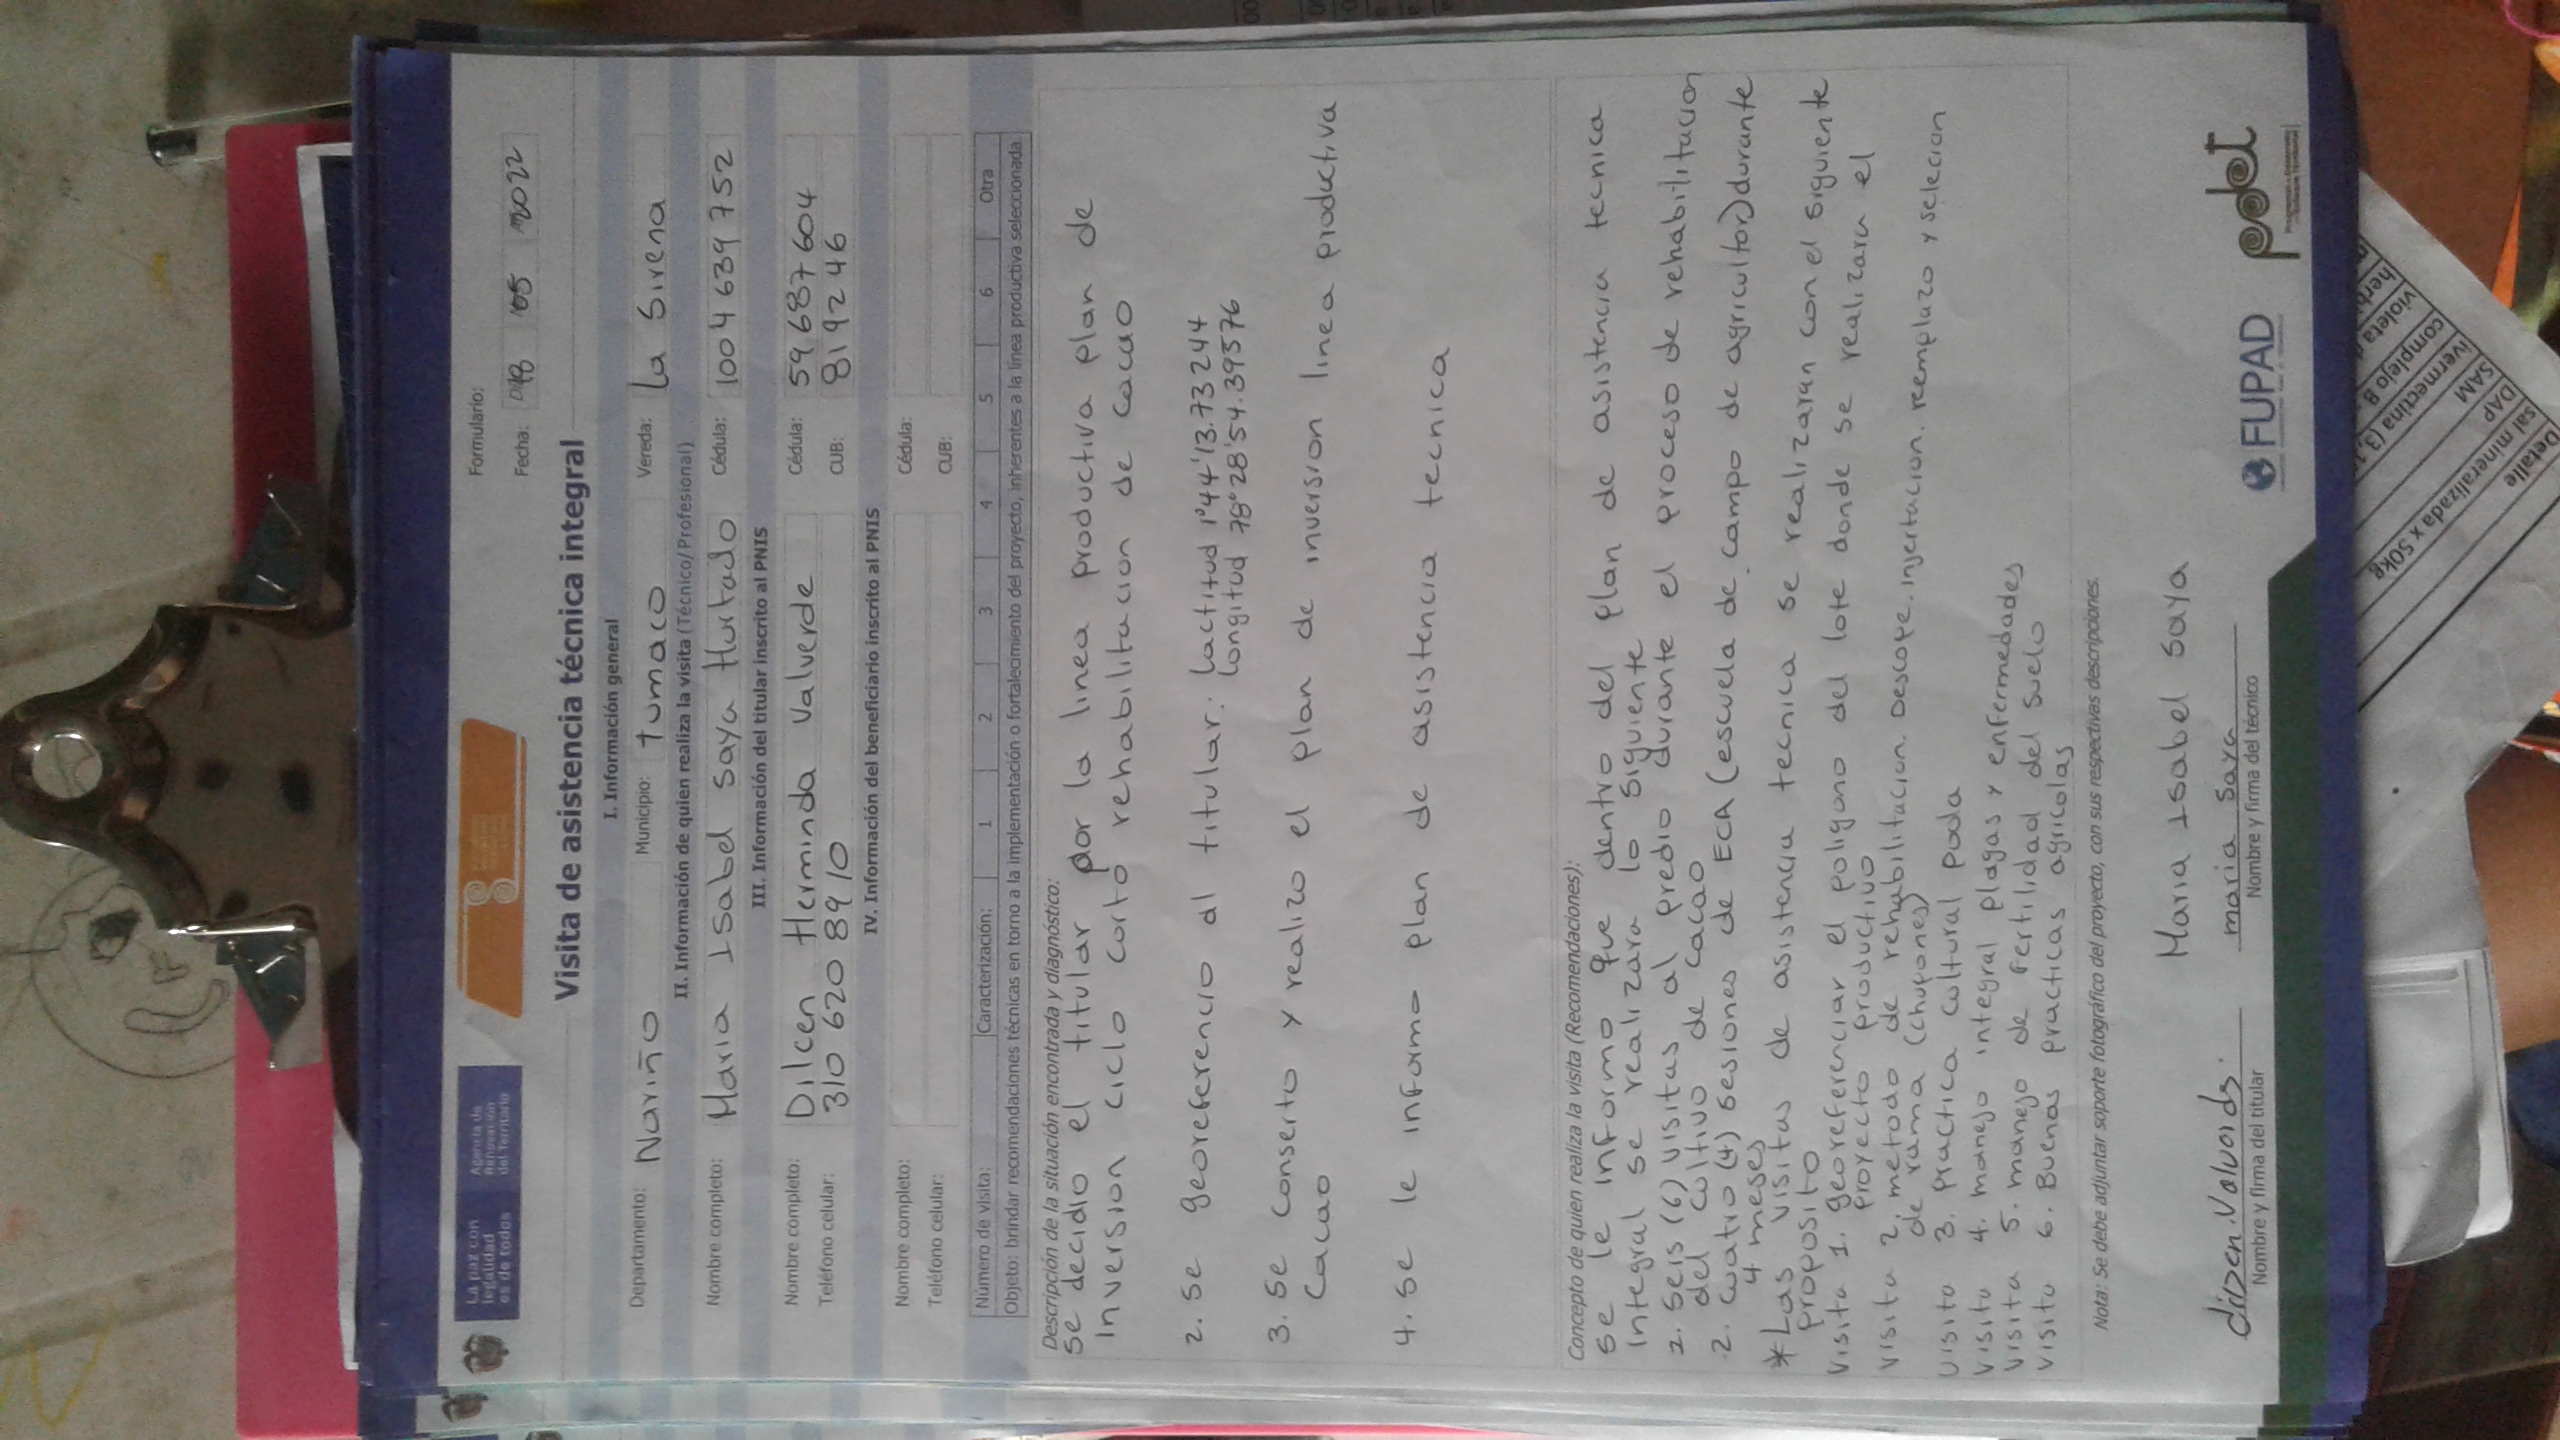 La paz con
legalidad
es de todos
Agencia de
Renovación
del Territorio
Formulario:
Fecha: 05 2022
Visita de asistencia técnica integral
I. Información general
Departamento: Nariño Municipio: tumaco Vereda: La Sirena
II. Información de quien realiza la visita (Técnico/Profesional)
Nombre completo: Maria Isabel Saya Hurtado Cédula: 1004639752
III. Información del titular inscrito al PNIS
Nombre completo: Dilcen Herminda Valverde Cédula: 59687604
Teléfono celular: 310 620 8910 CUB: 8192246
IV. Información del beneficiario inscrito al PNIS
Nombre completo: Cédula:
Teléfono celular: CUB:
Número de visita: Caracterización: 1 2 3 4 5 6 Otra
Objeto: brindar recomendaciones técnicas en torno a la implementación o fortalecimiento del proyecto, inherentes a la línea productiva seleccionada.
Descripción de la situación encontrada y diagnóstico:
Se decidio el titular por la linea productiva plan de
inversion ciclo corto rehabilitacion de cacao
2. Se georeferencio al titular: Lactitud 1°44'13.73244
Longitud 78°28'54.39576
3. Se conserto y realizo el plan de inversion linea productiva
Cacao
4. Se le informo plan de asistencia tecnica
Concepto de quien realiza la visita (Recomendaciones):
Se le informo que dentro del plan de asistencia tecnica
integral se realizara lo siguiente
1. Seis (6) visitas al predio durante el proceso de rehabilitacion
del cultivo de cacao
2. cuatro (4) sesiones de ECA (escuela de campo de agricultor) durante
4 meses
* Las visitas de asistencia tecnica se realizaran con el siguiente
proposito
Visita 1. georeferenciar el poligono del lote donde se realizara el
proyecto productivo
Visita 2. metodo de rehabilitacion. Descope. injertacion. remplazo y selecion
de rama (chupones)
Visita 3. practica cultural poda
Visita 4. manejo integral plagas y enfermedades
Visita 5. manejo de fertilidad del suelo
Visita 6. Buenas practicas agricolas
Nota: Se debe adjuntar soporte fotográfico del proyecto, con sus respectivas descripciones.
Maria Isabel Saya
maria Saya
Nombre y firma del titular
Nombre y firma del técnico
FUPAD
pdet
Detalle
sal mineralizada x 50kg
DAP
SAM
ivermectina (3,1
complejo B
violeta
herb